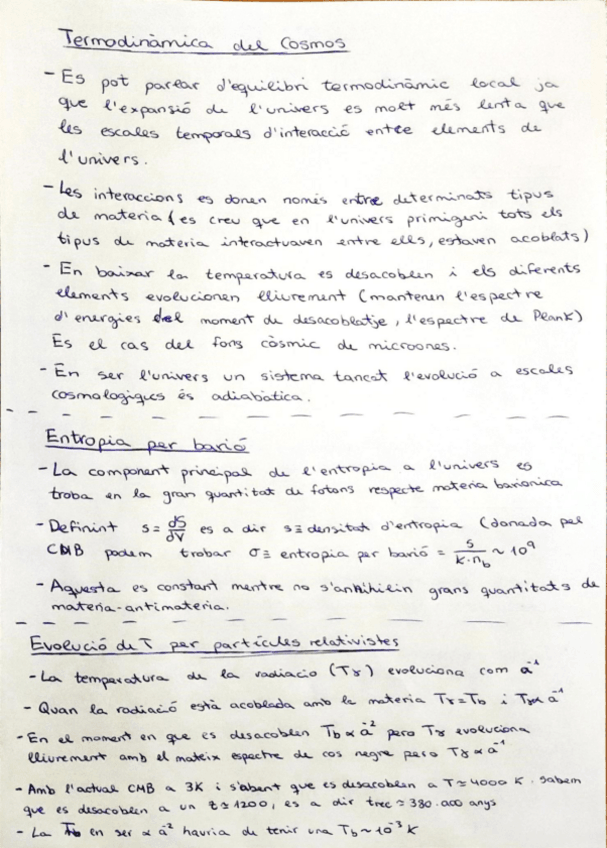 Termodinàmica del Cosmos
- Es pot parlar d'equilibri termodinàmic local ja
que l'expansió de l'univers es molt més lenta que
les escales temporals d'interacció entre elements de
l'univers.
- Les interaccions es donen només entre determinats tipus
de materia (es creu que en l'univers primigeni tots els
tipus de materia interactuaven entre ells, estaven acoblats)
- En baixar la temperatura es desacoblen i els diferents
elements evolucionen lliurement (mantenen l'espectre
d'energies del moment de desacoblatje, l'espectre de Plank)
Es el cas del fons còsmic de microones.
- En ser l'univers un sistema tancat l'evolució a escales
cosmologiques és adiabàtica.
Entropia per barió
- La component principal de l'entropia a l'univers es
troba en la gran quantitat de fotons respecte materia barionica
- Definint s = dS/dV es a dir s ≡ densitat d'entropia (donada pel
CMB podem trobar σ ≡ entropia per barió = s/k·n_b ~ 10⁹
- Aquesta es constant mentre no s'anihilin grans quantitats de
materia-antimateria.
Evolució de T per partícules relativistes
- La temperatura de la radiacio (Tγ) evoluciona com a⁻¹
- Quan la radiació està acoblada amb la materia Tγ = Tb i Tγ ∝ a⁻¹
- En el moment en que es desacoblen Tb ∝ a⁻² pero Tγ evoluciona
lliurement amb el mateix espectre de cos negre pero Tγ ∝ a⁻¹
- Amb l'actual CMB a 3K i sabent que es desacoblen a T ≃ 4000 K. Sabem
que es desacoblen a un z ≃ 1200, es a dir trec ≃ 380.000 anys
- La Tb en ser ∝ a⁻² hauria de tenir una Tb ~ 10⁻³ K